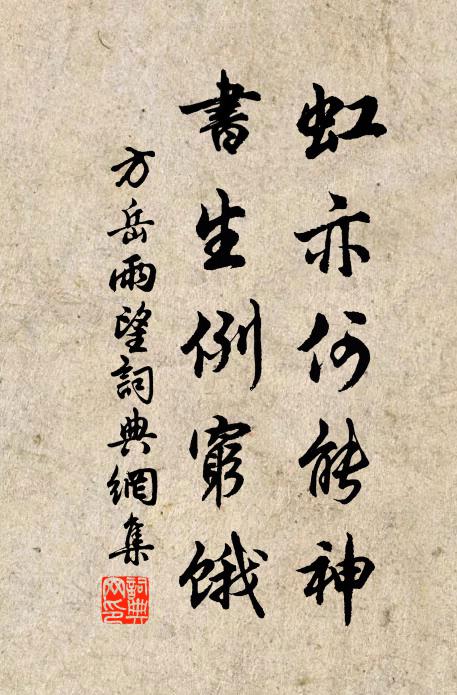 虹亦何能神
書生例窮餓
方岳雨望詞典網集
詞典網印